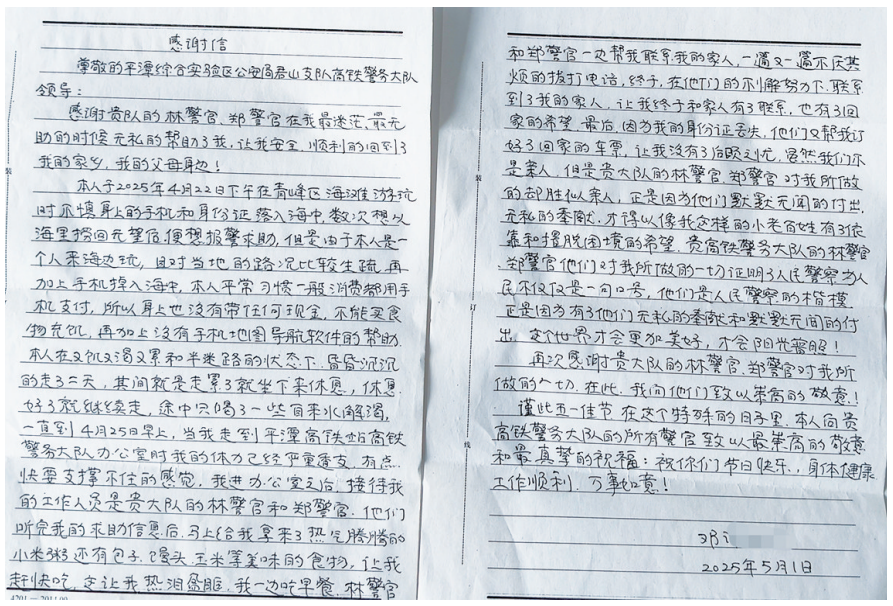 感谢信
尊敬的平潭综合实验区公安局君山支队高铁警务大队
领导:
感谢贵队的林警官、郑警官在我最迷茫、最无
助的时候无私的帮助了我,让我安全、顺利的回到了
我的家乡,我的父母身边!
本人于2025年4月22日下午在青峰区海滩游玩
时不慎身上的手机和身份证落入海中,数次想从
海里捞回无望后便想报警求助,但是由于本人是一
个人来海边玩,且对当地的路况比较生疏,再
加上手机掉入海中,本人平常习惯一般消费都用手
机支付,所以身上也没有带任何现金,不能买食
物充饥,再加上没有手机地图导航软件的帮助
本人在又饥又渴又累和半迷路的状态下,昏昏沉沉
的走了三天,其间就是走累了就坐下来休息,休息
好了就继续走,途中只喝了一些自来水解渴,
一直到4月25日早上,当我走到平潭高铁站高铁
警务大队办公室时我的体力已经严重透支,有点
快要支撑不住的感觉,我进办公室之后,接待我
的工作人员是贵大队的林警官和郑警官,他们
听完我的求助信息后,马上给我拿来了热气腾腾的
小米粥还有包子、馒头、玉米等美味的食物,让我
赶快吃,这让我热泪盈眶,我一边吃早餐,林警官
和郑警官一边帮我联系我的家人,一遍又一遍不厌其
烦的拨打电话,终于,在他们的不懈努力下,联系
到了我的家人,让我终于和家人有了联系,也有了回
家的希望,最后,因为我的身份证丢失,他们又帮我订
好了回家的车票,让我没有了后顾之忧,虽然我们不
是亲人,但是贵大队的林警官、郑警官对我所做
的却胜似亲人,正是因为他们默默无闻的付出,
无私的奉献,才得以像我这样的小老百姓有了依
靠和摆脱困境的希望,贵高铁警务大队的林警官
、郑警官他们对我所做的一切证明了人民警察为人
民不仅仅是一句口号,他们是人民警察的楷模
正是因为有了他们无私的奉献和默默无闻的付
出,这个世界才会更加美好,才会阳光需照!
再次感谢贵大队的林警官、郑警官对我所
做的一切,在此,我向他们致以崇高的敬意!
谨此五一佳节,在这个特殊的日子里,本人向贵
高铁警务大队的所有警官致以最崇高的敬意
和最真挚的祝福:祝你们节日快乐,身体健康
工作顺利,万事如意!
邓
2025年5月1日
装
装
订
线